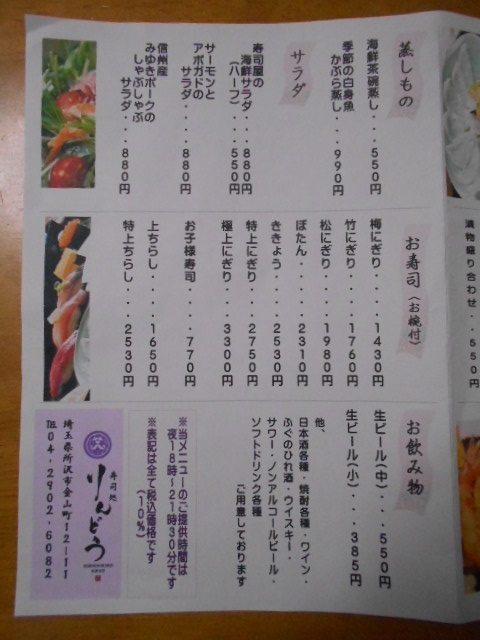 蒸しもの
海鮮茶碗蒸し・・・550円
季節の白身魚
かぶら蒸し・・・990円
サラダ
寿司屋の
海鮮サラダ・・・880円
(ハーフ)・・・550円
サーモンと
アボガドの
サラダ・・・880円
信州産
みゆきポークの
しゃぶしゃぶ
サラダ・・・880円
漬物盛り合わせ・・550円
お寿司(お椀付)
梅にぎり・・・・1430円
竹にぎり・・・・1760円
松にぎり・・・・1980円
ぼたん・・・・・2310円
ききょう・・・・2530円
特上にぎり・・・2750円
極上にぎり・・・3300円
お子様寿司・・・・770円
上ちらし・・・・1650円
特上ちらし・・・2530円
お飲み物
生ビール(中)・・・550円
生ビール(小)・・・385円
他、
日本酒各種・焼酎各種・ワイン・
ふぐのひれ酒・ウイスキー・
サワー・ノンアルコールビール・
ソフトドリンク各種
ご用意しております
※当メニューのご提供時間は
夜18時~21時30分です
※表記は全て税込価格です
(10%)
寿司処
りんどう
埼玉県所沢市金山町12-11
TEL 04・2902・6082